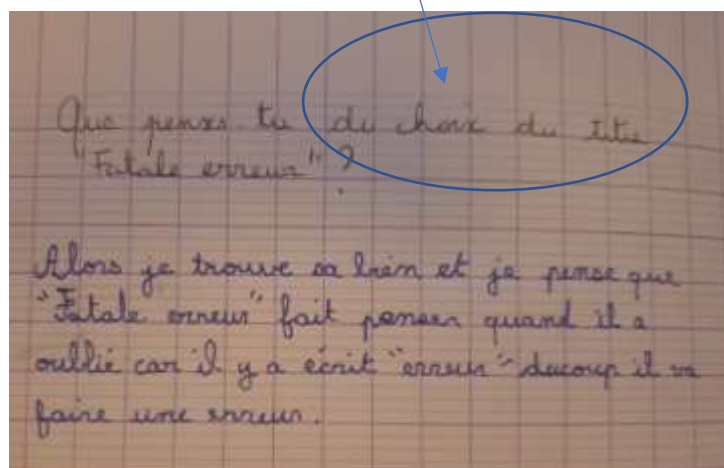 Que penses tu du choix du titre
"Fatale erreur" ?
Alors je trouve sa bien et je pense que
"Fatale erreur" fait penser quand il a
oublié car il y a écrit "erreur" ducoup il va
faire une erreur.